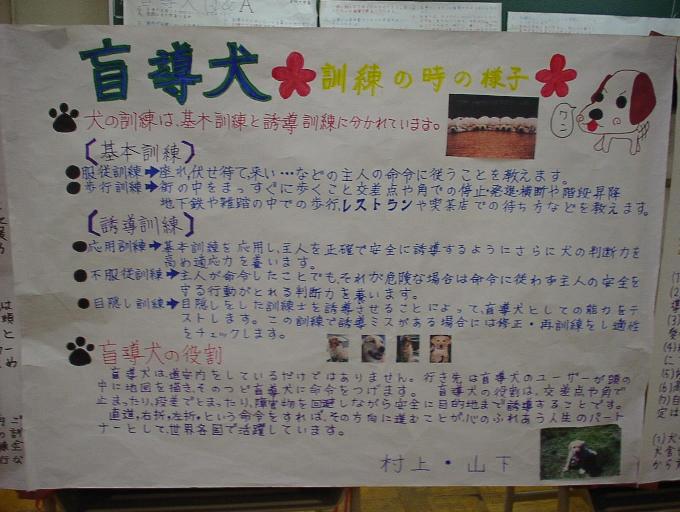 盲導犬 訓練の時の様子
犬の訓練は、基本訓練と誘導訓練に分かれています。
ワン
〔基本訓練〕
●服従訓練➡座れ,伏せ待て,来い…などの主人の命令に従うことを教えます。
●歩行訓練➡街の中をまっすぐに歩くこと交差点や角での停止・発進・横断や階段昇降
地下鉄や雑踏の中での歩行,レストランや喫茶店での待ち方などを教えます。
〔誘導訓練〕
●応用訓練➡基本訓練を応用し,主人を正確で安全に誘導するようにさらに犬の判断力を
高め適応力を養います。
●不服従訓練➡主人が命令したことでも,それが危険な場合は命令に従わず主人の安全を
する行動がとれる判断力を養います。
●目隠し訓練➡目隠しをした訓練士を誘導させることによって,盲導犬としての能力をテ
ストします。この訓練で誘導ミスがある場合には修正・再訓練をし適性
をチェックします。
盲導犬の役割
盲導犬は道案内をしているだけではありません。行き先は盲導犬のユーザーが頭の
中に地図を描き,そのつど盲導犬に命令をつげます。盲導犬の役割は、交差点や角で
止まったり,段差でとまったり,障害物を回避しながら安全に目的地まで誘導することです。
直進,右折,左折,という命令をすれば,その方向に進むことが,心のふれあう人生のパート
ナーとして,世界各国で活躍しています。
村上・山下